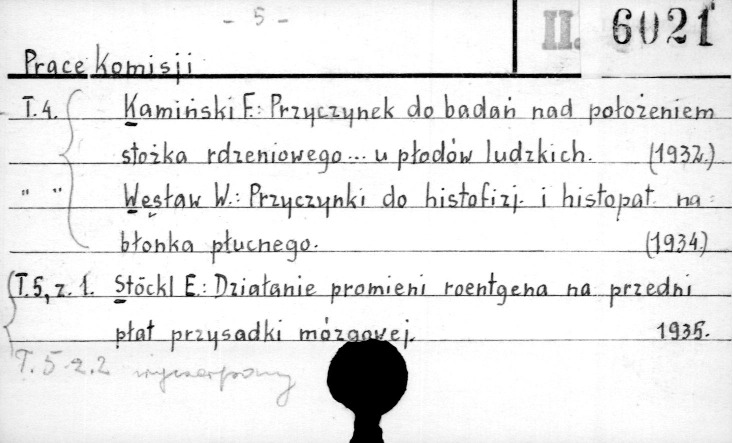 - 5 -
II. 6021
Prace Komisji
T.4. Kamiński F.: Przyczynek do badań nad położeniem
stożka rdzeniowego... u płodów ludzkich. (1932.)
" " Węsław W.: Przyczynki do histofizj. i histopat. na=
błonka płucnego. (1934.)
T.5, z. 1. Stöckl E.: Działanie promieni roentgena na przedni
płat przysadki mózgowej. 1935.
T. 5 z. 2 wyczerpany